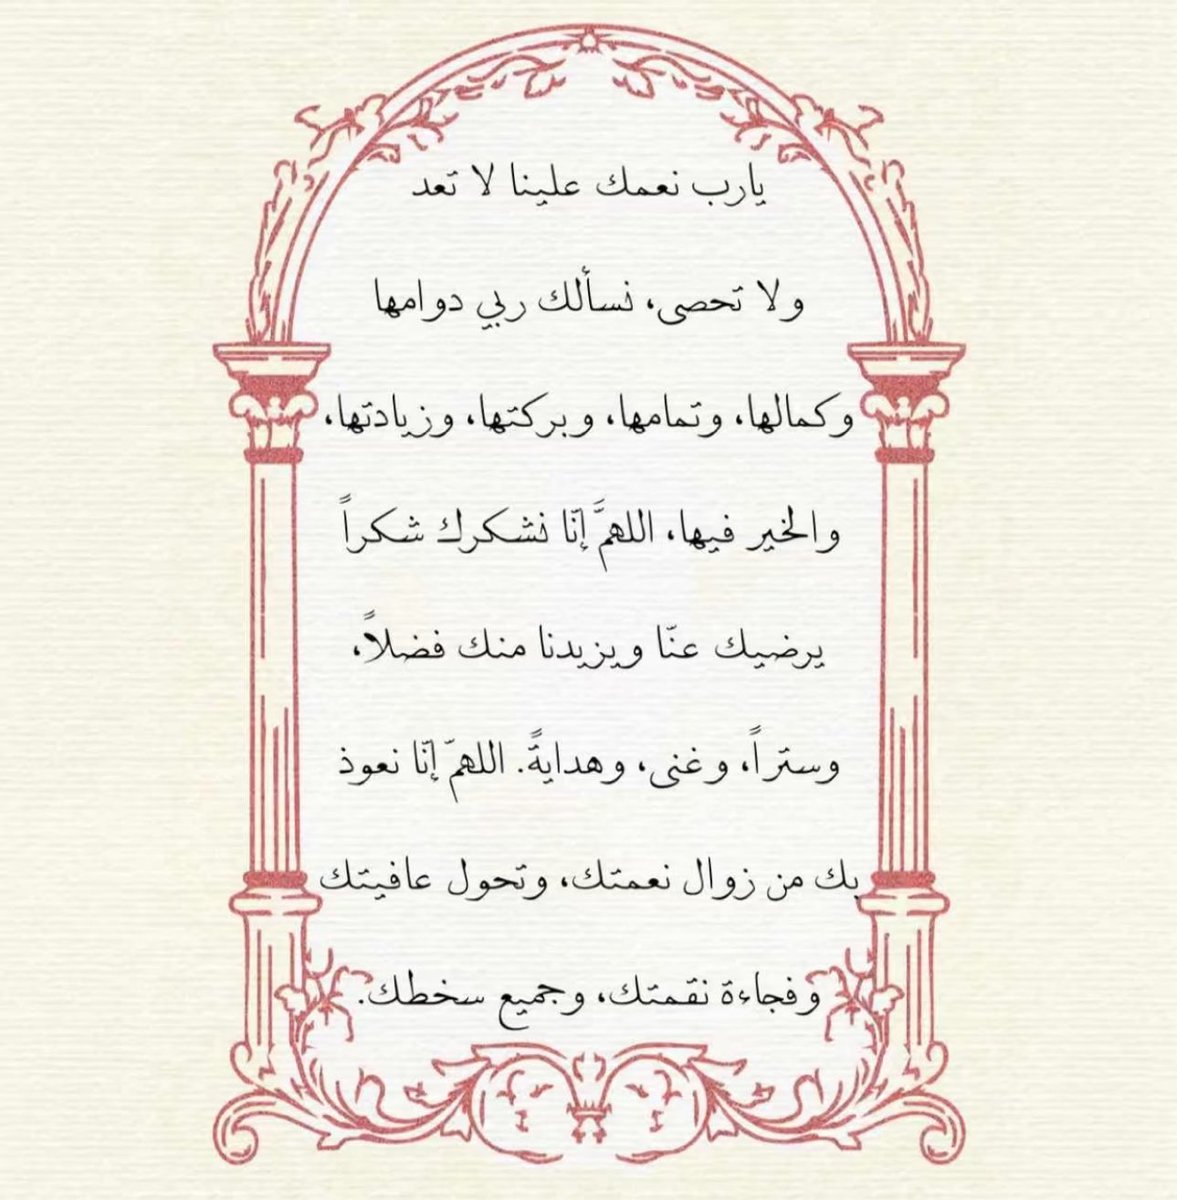 يارب نعمك علينا لا تعد
ولا تحصى، نسألك ربي دوامها
وكمالها، وتمامها، وبركتها، وزيادتها،
والخير فيها، اللهمَّ إنّا نشكرك شكراً
يرضيك عنّا ويزيدنا منك فضلاً،
وستراً، وغنى، وهدايةً. اللهمّ إنّا نعوذ
بك من زوال نعمتك، وتحول عافيتك
وفجاءة نقمتك، وجميع سخطك.